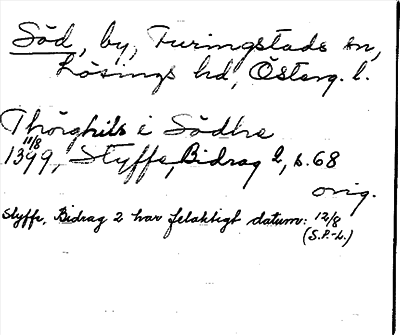 Söd, by, Furingstads sn,
Lösings hd, Österg. l.
Thörghils i Södhe
11/8
1399, Styffe, Bidrag 2, s. 68
orig.
Styffe, Bidrag 2 har felaktigt datum: 12/8
(S.P.-L.)